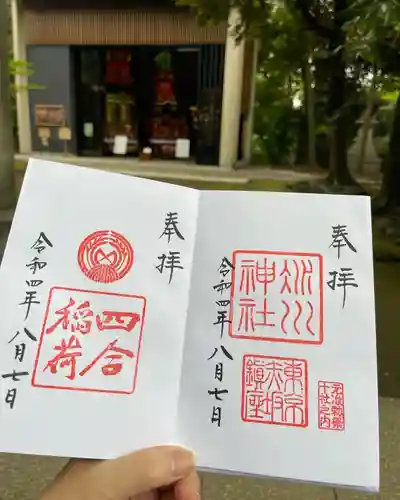 奉拝
氷川
神社
東京
赤坂
鎮座
元准勅祭
十社之内
令和四年 八月七日
奉拝
四合
稲荷
令和四年 八月七日